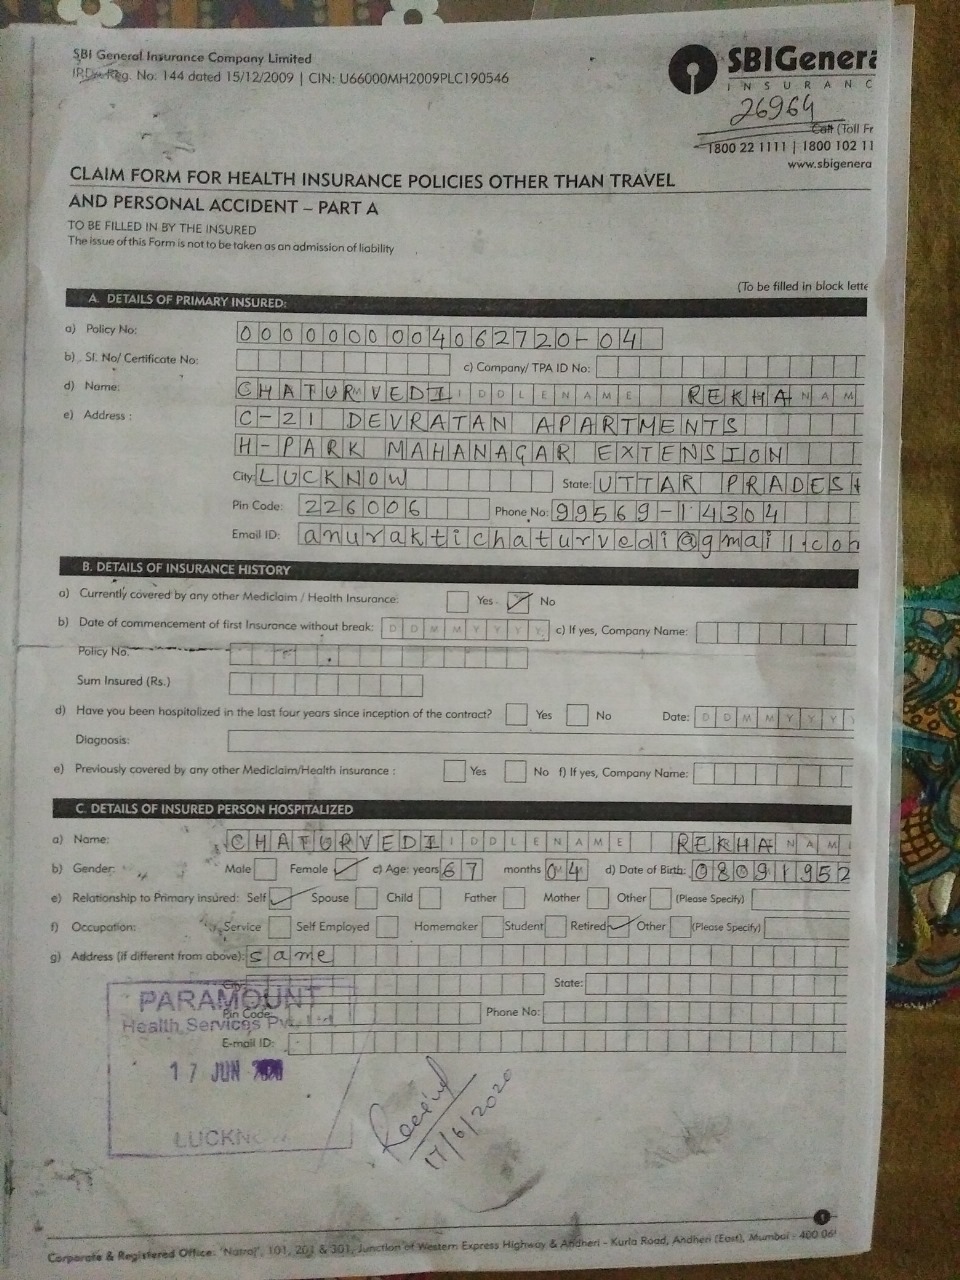 SBI General Insurance Company Limited
IRDA Reg. No. 144 dated 15/12/2009 | CIN: U66000MH2009PLC190546
SBIGenera
INSURANC
26964
Call (Toll Fr
1800 22 1111 | 1800 102 11
www.sbigenera
CLAIM FORM FOR HEALTH INSURANCE POLICIES OTHER THAN TRAVEL
AND PERSONAL ACCIDENT – PART A
TO BE FILLED IN BY THE INSURED
The issue of this Form is not to be taken as an admission of liability
(To be filled in block lette
A. DETAILS OF PRIMARY INSURED:
a) Policy No: 0000000004062720-04
b) Sl. No/ Certificate No: c) Company/ TPA ID No:
d) Name: CHATURVEDI IDDLENAME REKHA NAM
e) Address : C-21 DEVRATAN APARTMENTS
H-PARK MAHANAGAR EXTENSION
City: LUCKNOW State: UTTAR PRADESH
Pin Code: 226006 Phone No: 99569-14304
Email ID: anuraktichaturvedi@gmail.com
B. DETAILS OF INSURANCE HISTORY
a) Currently covered by any other Mediclaim / Health Insurance: Yes No
b) Date of commencement of first Insurance without break: DDMMYYYY c) If yes, Company Name:
Policy No.
Sum Insured (Rs.)
d) Have you been hospitalized in the last four years since inception of the contract? Yes No Date: DDMMYYY
Diagnosis:
e) Previously covered by any other Mediclaim/Health insurance : Yes No f) If yes, Company Name:
C. DETAILS OF INSURED PERSON HOSPITALIZED
a) Name: CHATURVEDI IDDLENAME REKHA NAM
b) Gender: Male Female c) Age: years 67 months 04 d) Date of Birth: 08091952
e) Relationship to Primary insured: Self Spouse Child Father Mother Other (Please Specify)
f) Occupation: Service Self Employed Homemaker Student Retired Other (Please Specify)
g) Address (if different from above): same
City: State:
Pin Code: Phone No:
E-mail ID:
PARAMOUNT
Health Services Pvt. Ltd.
17 JUN
LUCKNOW
Received
17/6/2020
1
Corporate & Registered Office: 'Natraj', 101, 201 & 301, Junction of Western Express Highway & Andheri - Kurla Road, Andheri (East), Mumbai - 400 06